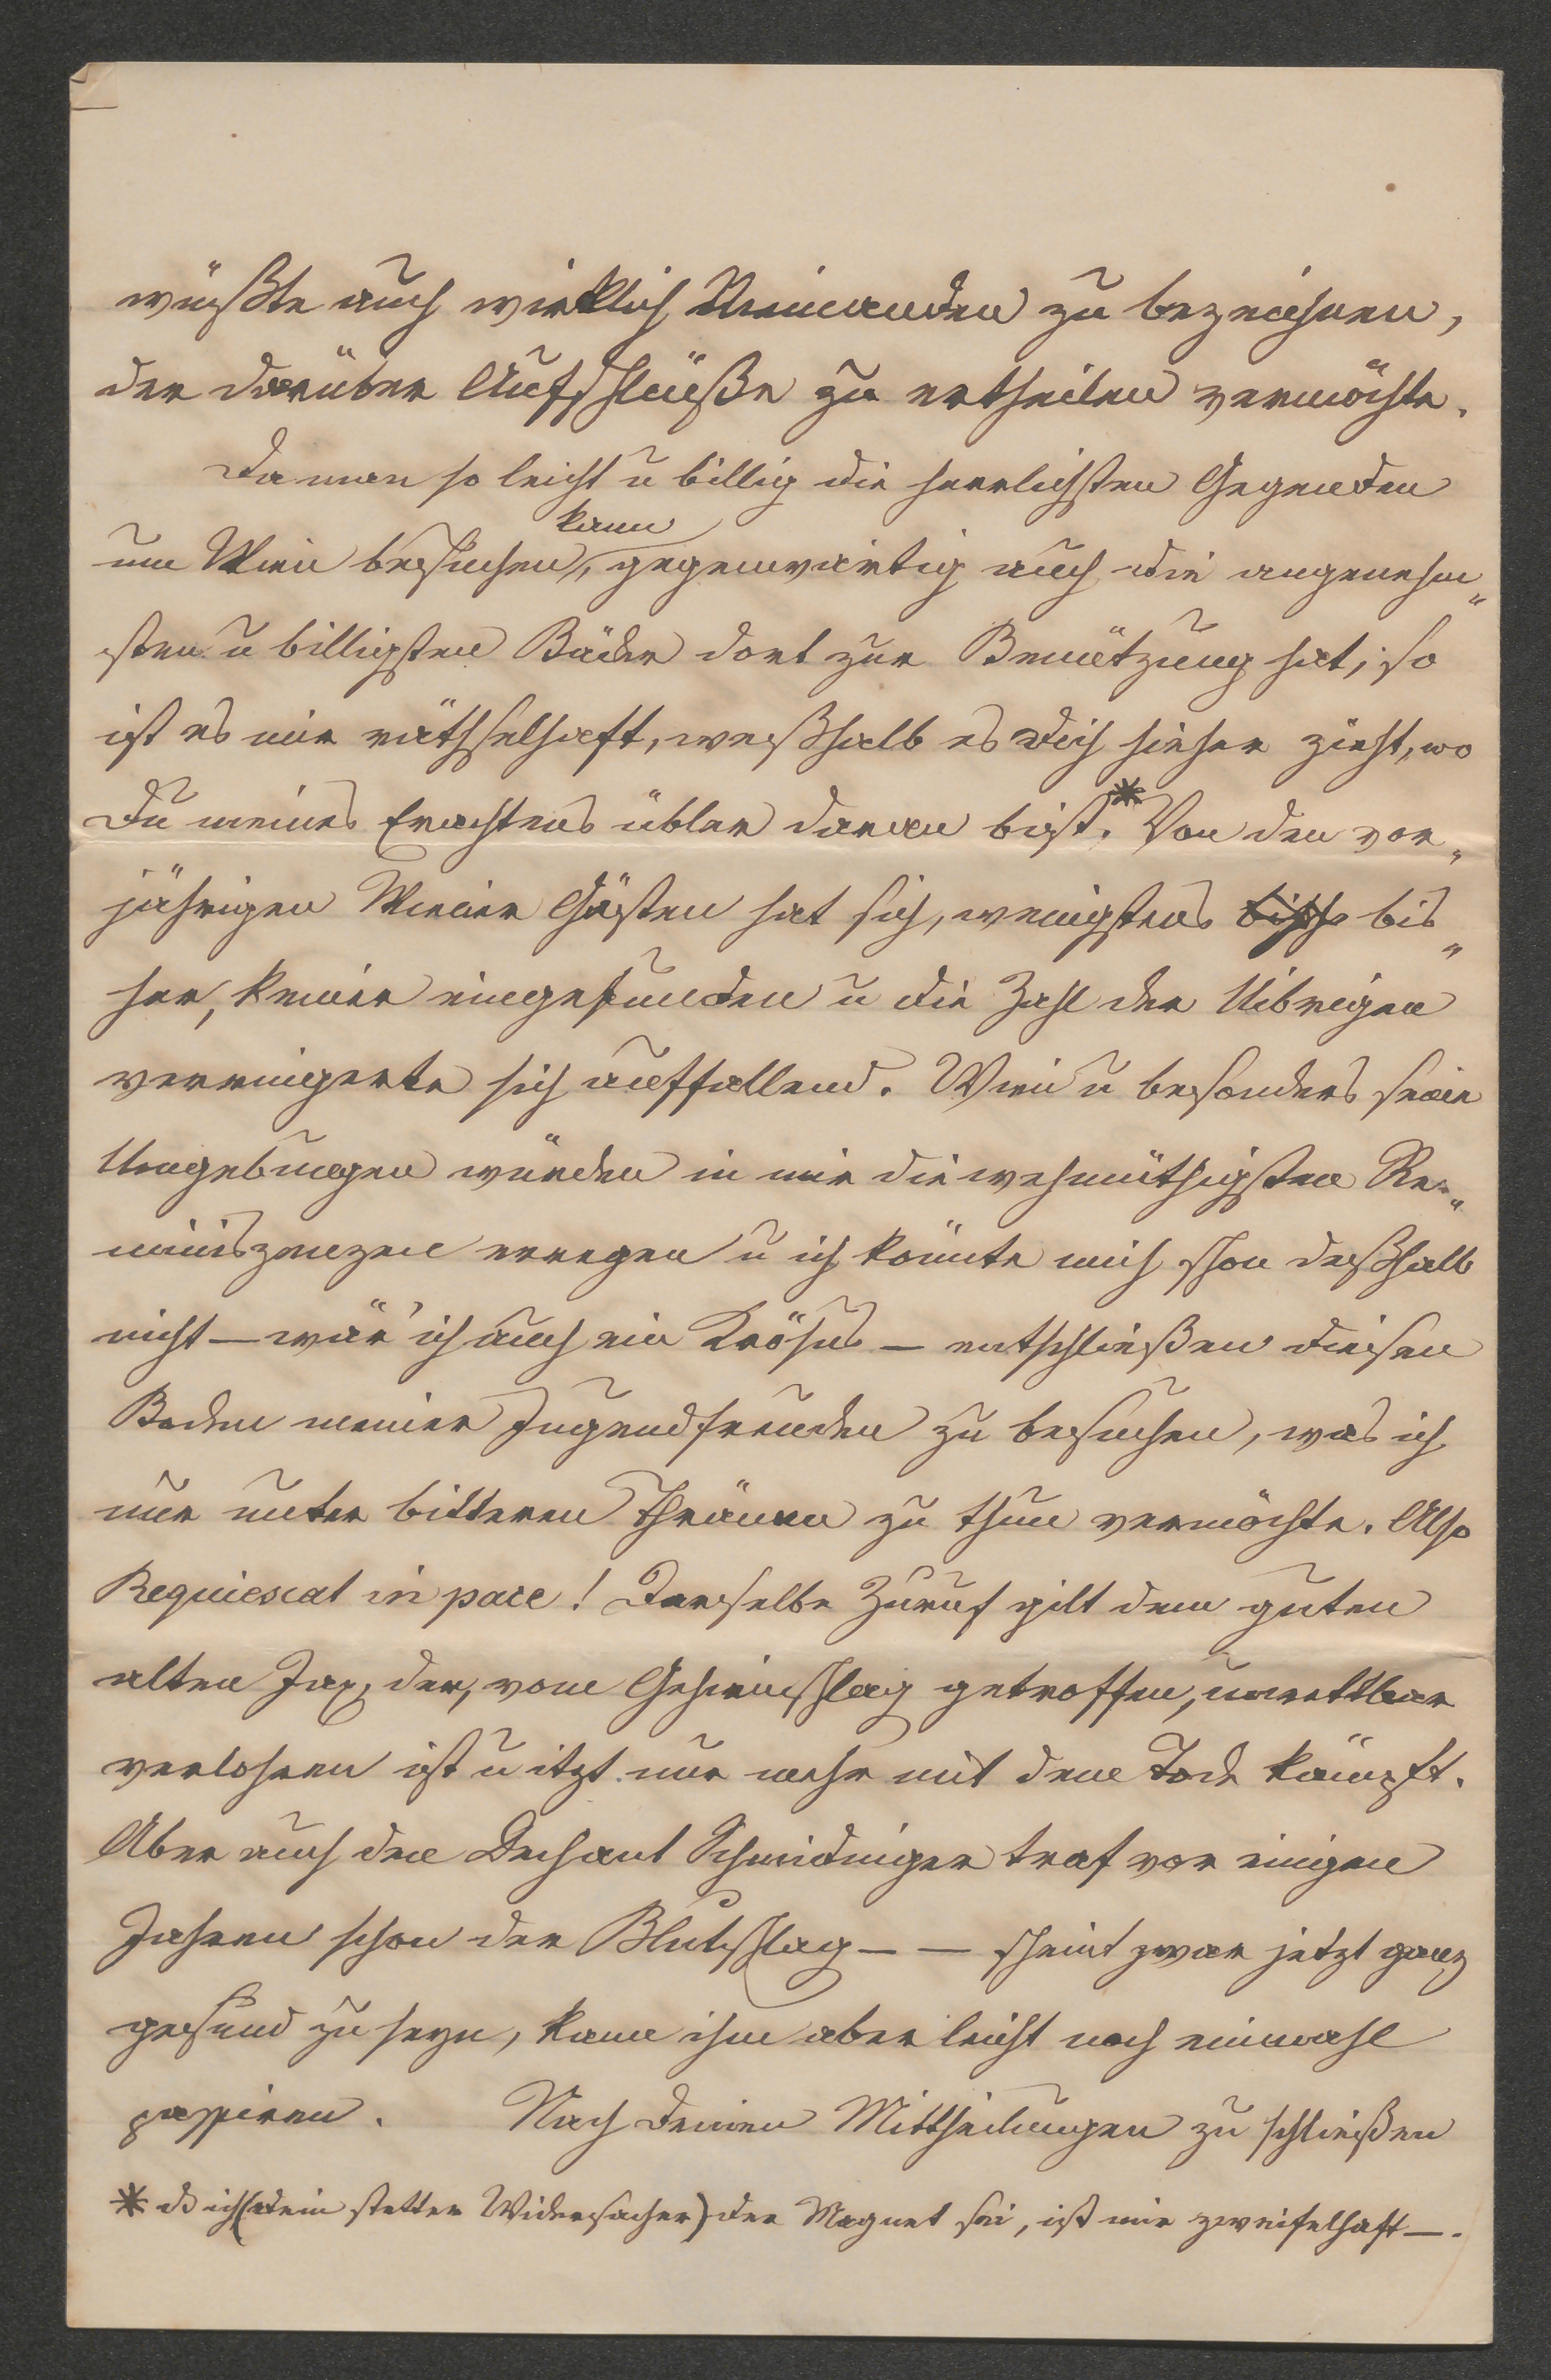 wüßte auch wirklich Niemanden zu bezeichnen,
der darüber Aufschlüße zu ertheilen vermöchte.
Da man so leicht u billig die herrlichsten Gegenden
kann
um Wien besuchen, gegenwärtig auch die angenehm„
sten u billigsten Bäder dort zur Benützung hat, so
ist es mir räthselhaft, weßhalb es Dich hieher zieht, wo
Du meines Erachtens übler daran bist.* Von den vor„
jährigen Wiener Gästen hat sich, wenigstens bishe bis„
her, keiner eingefunden u die Zahl der Uibrigen
verringerte sich auffallend. Wien u besonders seine
Umgebungen würden in mir die wehmüthigsten Re„
miniszenzen erregen u ich könnte mich schon deßhalb
nicht – wär' ich auch ein Krösus – entschließen diesen
Boden meiner Jugendfreuden zu besuchen, was ich
nur unter bitteren Thränen zu thun vermöchte. Also
Requiescat in pace! Derselbe Zuruf gilt dem guten
alten Jax, der, vom Gehirnschlag getroffen, unrettbar
verlohren ist u itzt nur mehr mit dem Tode kämpft.
Aber auch den Dechant Schmidinger traf vor einigen
Jahren schon der Blutschlag – – scheint zwar jetzt ganz
gesund zu seyn, kann ihm aber leicht noch einmahl
passiren. Nach Deinen Mittheilungen zu schließen
* ds ich (Dein stetter Widersacher) der Magnet sei, ist mir zweifelhaft –.